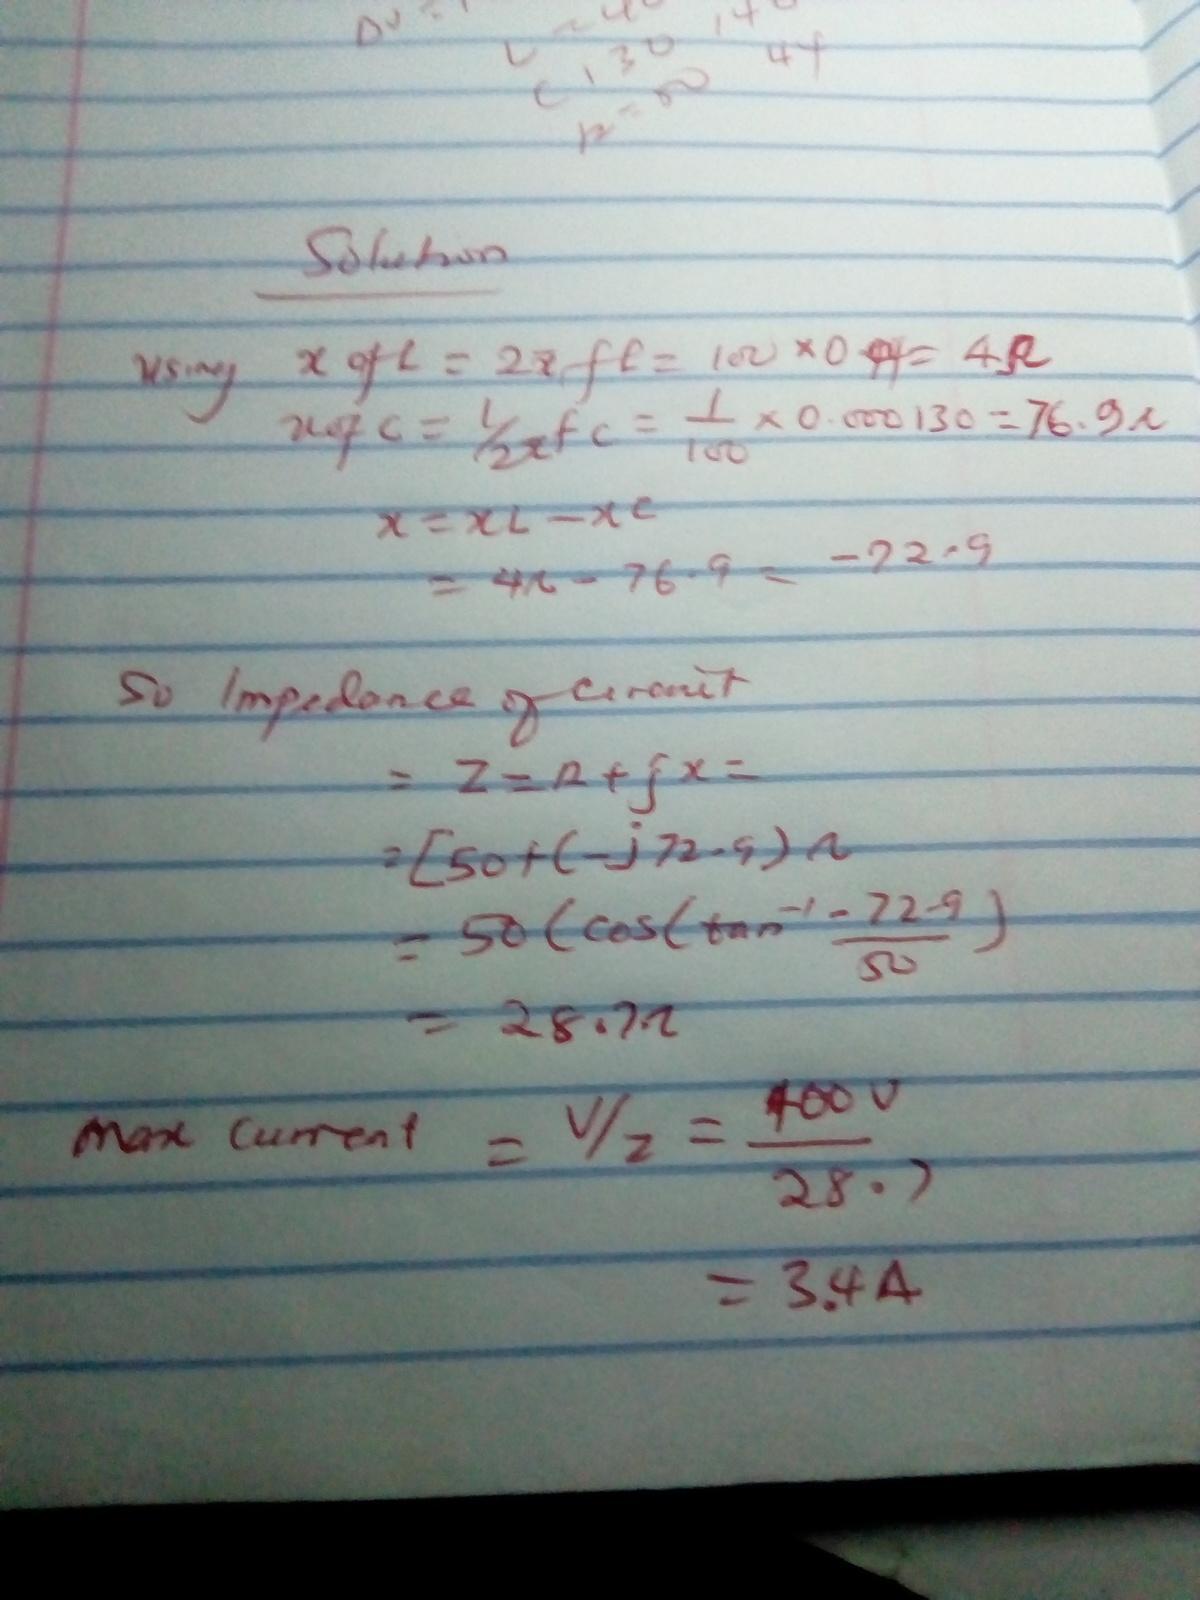 DV =
L = 40
C 130
4f
R = 50
Solution
Using x of L = 2πfL = 100 × 0.04 = 4Ω
x of C = 1/2πfC = 1/100 × 0.000130 = 76.9Ω
x = xL - xC
= 4Ω - 76.9 = -72.9
So Impedance of circuit
= Z = R + jx =
= [50 + (-j72.9) Ω
= 50 (cos(tan⁻¹ -72.9/50)
= 28.7Ω
Max Current = V/Z = 100V/28.7
= 3.4A